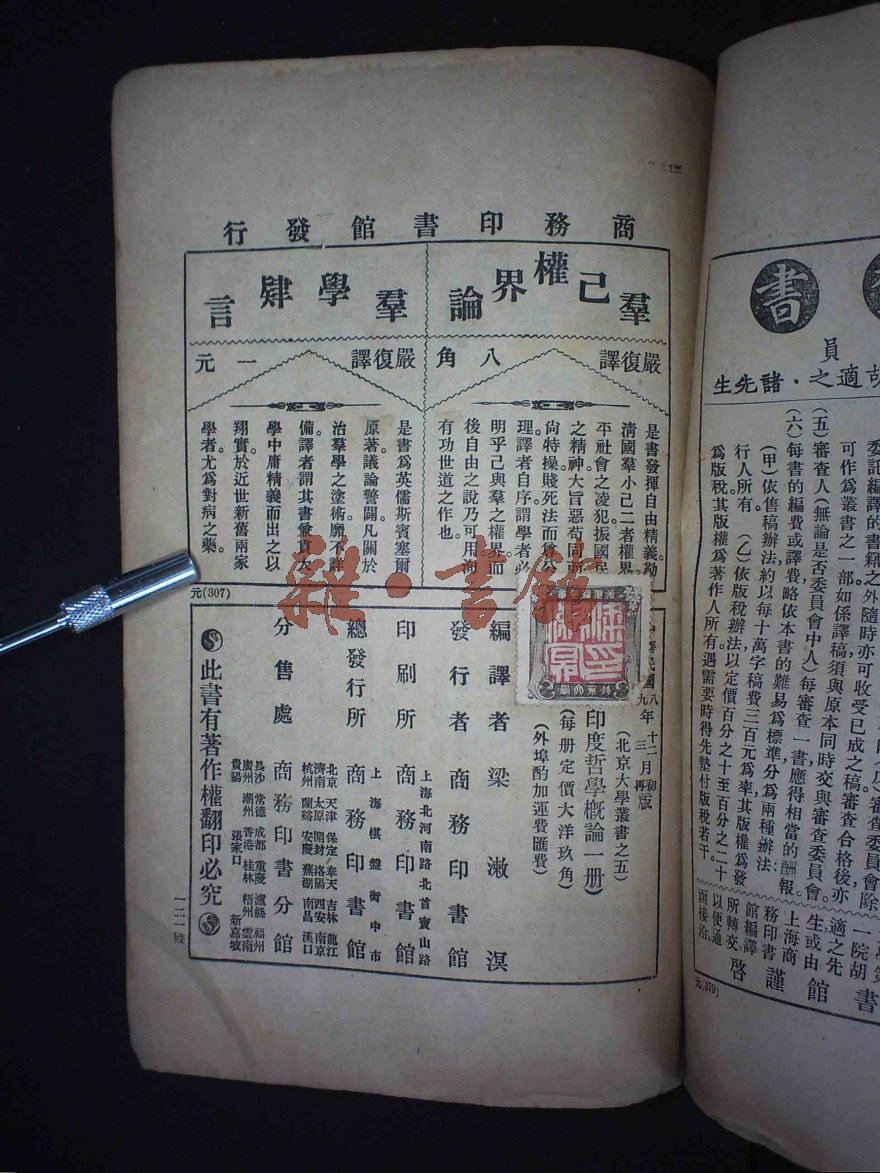 商務印書館發行
羣己權界論
嚴復譯 八角
是書發揮自由精義勘
清國羣小己二者權界
平社會之凌犯振國民
之精神大旨惡苟同而
尙特操賤死法而貴公
理譯者自序謂學者必
明乎己與羣之權界而
後自由之說乃可用洵
有功世道之作也。
羣學肄言
嚴復譯 一元
是書爲英儒斯賓塞爾
原著議論警闢凡關於
治羣學之塗術靡不詳
備譯者謂其書兼貫大
學中庸精義而出之以
翔實於近世新舊兩家
學者尤爲對病之藥。
元(307)
雜·書館
九八年
十二月初
三 再版
(北京大學叢書之五)
印度哲學概論一册)
(每册定價大洋玖角)
(外埠酌加運費匯費)
編譯者 梁漱溟
發行者 商務印書館
上海北河南路北首寶山路
印刷所 商務印書館
上海棋盤街中市
總發行所 商務印書館
北京 天津 保定 奉天 吉林 龍江
濟南 太原 開封 洛陽 西安 南京
杭州 蘭谿 安慶 蕪湖 南昌 漢口
分售處 商務印書分館
長沙 常德 成都 重慶 瀘縣 福州
廣州 潮州 香港 桂林 梧州 雲南
貴陽 張家口 新嘉坡
此書有著作權翻印必究
書
員
胡適之·諸先生
委託編譯的書籍之外隨時亦可收受已成之稿審查合格後亦
可作爲叢書之一部如係譯稿須與原本同時交與審查委員會。
(五)審查人(無論是否委員會中人)每審查一書應得相當的酬報。
(六)每書的編費或譯費略依本書的難易爲標準分爲兩種辦法:
(甲)依售稿辦法約以每十萬字稿費三百元爲率其版權爲發
行人所有。(乙)依版稅辦法以定價百分之十至百分之二十
爲版稅其版權爲著作人所有遇需要時得先墊付版稅若干。
一院胡
適之先
生或由
上海商
務印書
館編譯
所轉交,
以便通
函接洽。
書館謹啓
元(379)